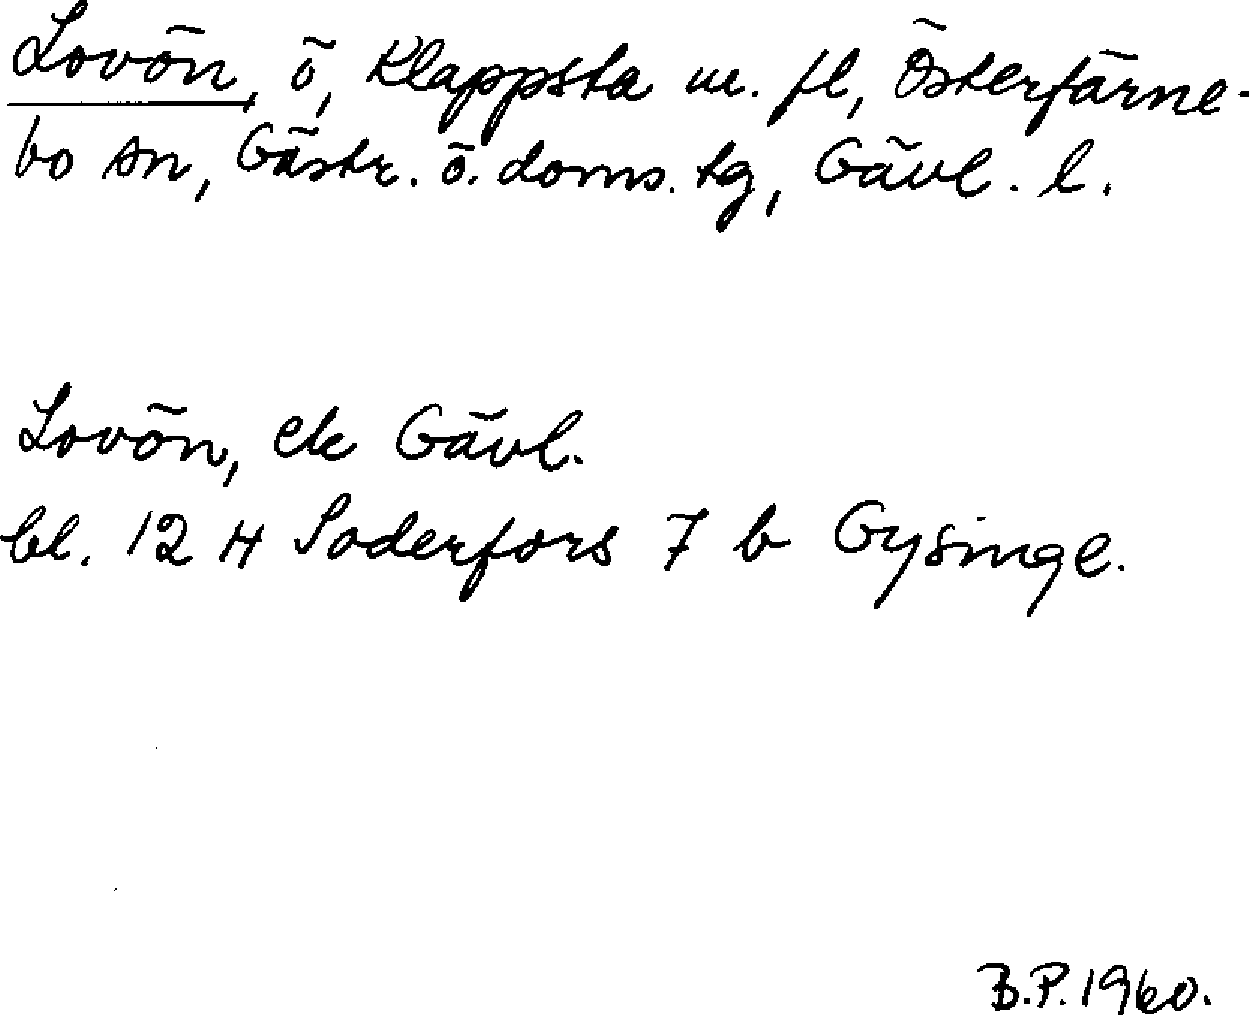 Lovön, ö, Klappsta m. fl, Österfärne-
bo sn, Gästr. ö. doms. tg, Gävl. l.
Lovön, ek Gävl.
bl. 12 H Soderfors 7 b Gysinge.
B.P. 1960.